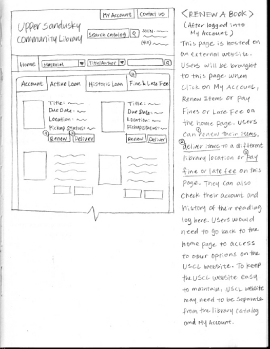 My Account | Contact us
Upper Sandusky
Community Library
Search catalog
Home
Account
Active Loan
Historic Loan
Fine & Late Fee
Title:
Due Date:
Location:
Pickup Status:
Renew
Deliver
Title:
Due Date:
Location:
Pickup Status:
Renew
Deliver
<RENEW A BOOK>
(After logged into
My Account)
This page is hosted on
an external website.
Users will be brought
to this page when
click on My Account,
Renew Items or Pay
Fines or Late Fee on
the home page. Users
can renew their items,
deliver items in a different
library location or pay
fine or late fee on this
page. They can also
check their account and
history of their reading
log here. Users would
need to go back to the
home page to access
to other options on the
USCL website. To keep
the USCL website easy
to maintain, USCL website
may need to be separate
from the library catalog
and My Account.